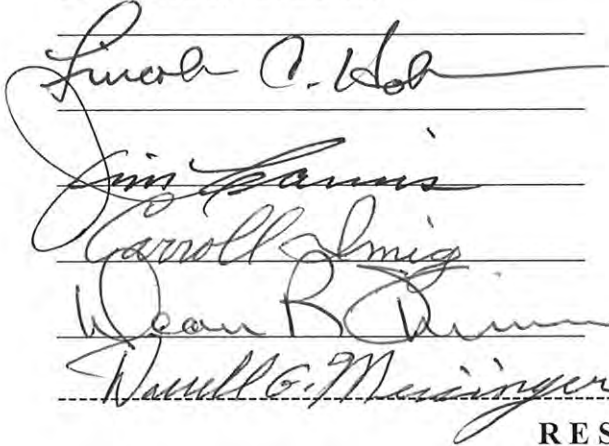 Lincoln C.
Jim
Carroll Imig
Dean R
Darrell G. Meisinger
RES